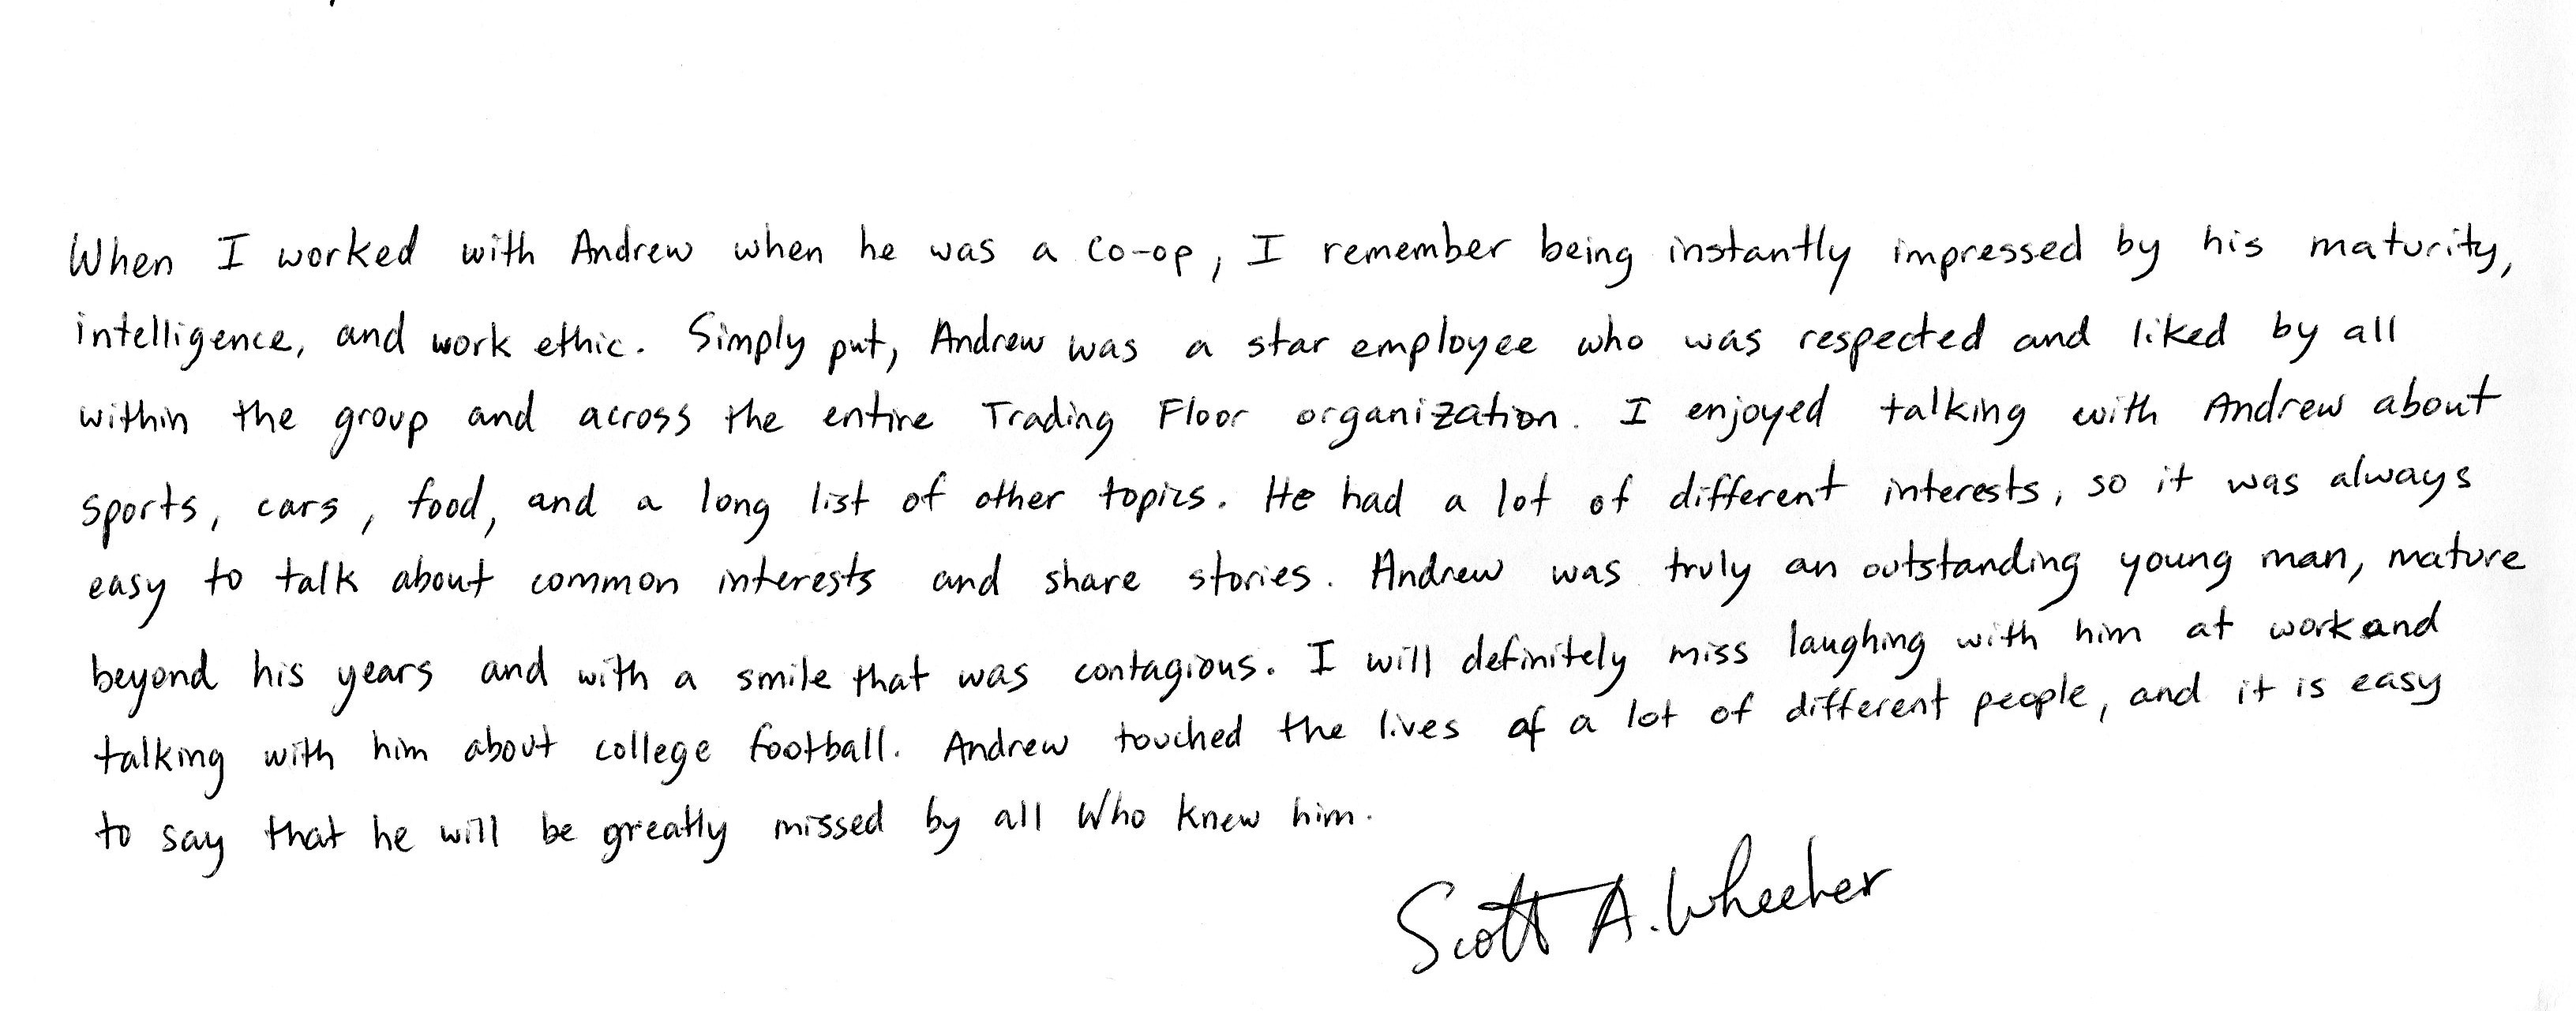 When I worked with Andrew when he was a co-op, I remember being instantly impressed by his maturity,
intelligence, and work ethic. Simply put, Andrew was a star employee who was respected and liked by all
within the group and across the entire Trading Floor organization. I enjoyed talking with Andrew about
sports, cars, food, and a long list of other topics. He had a lot of different interests, so it was always
easy to talk about common interests and share stories. Andrew was truly an outstanding young man, mature
beyond his years and with a smile that was contagious. I will definitely miss laughing with him at work and
talking with him about college football. Andrew touched the lives of a lot of different people, and it is easy
to say that he will be greatly missed by all who knew him.
Scott A. Wheeler